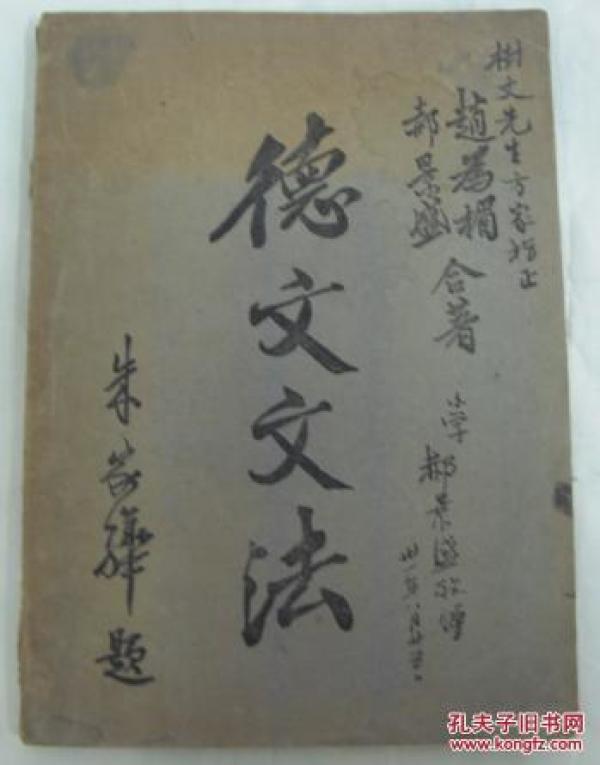 樹文先生方家指正
趙為楣
郝景盛
合著
郝景盛敬贈
卅一年八月廿
德文文法
朱家驊題
孔夫子旧书网
www.kongfz.com